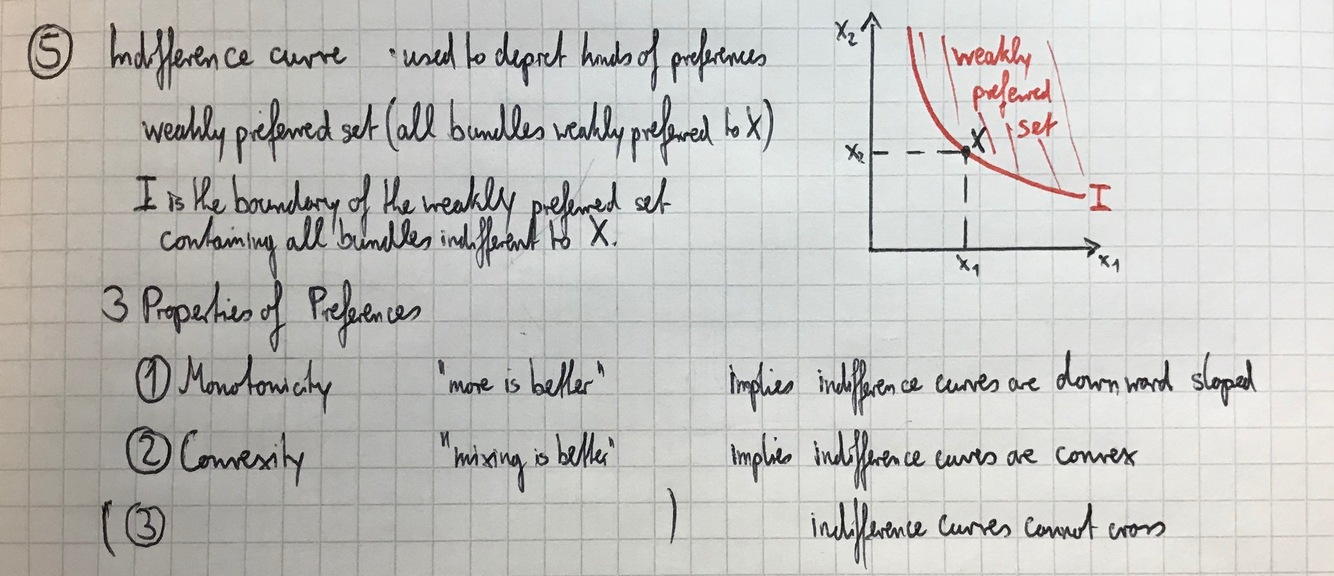 ⑤ Indifference curve · used to depict kinds of preferences
weakly preferred set (all bundles weakly preferred to X)
I is the boundary of the weakly preferred set
containing all bundles indifferent to X.
x₂
weakly
preferred
set
X
x₂
I
x₁
x₁
3 Properties of Preferences
① Monotonicity "more is better" implies indifference curves are downward sloped
② Convexity "mixing is better" implies indifference curves are convex
( ③ ) indifference curves cannot cross